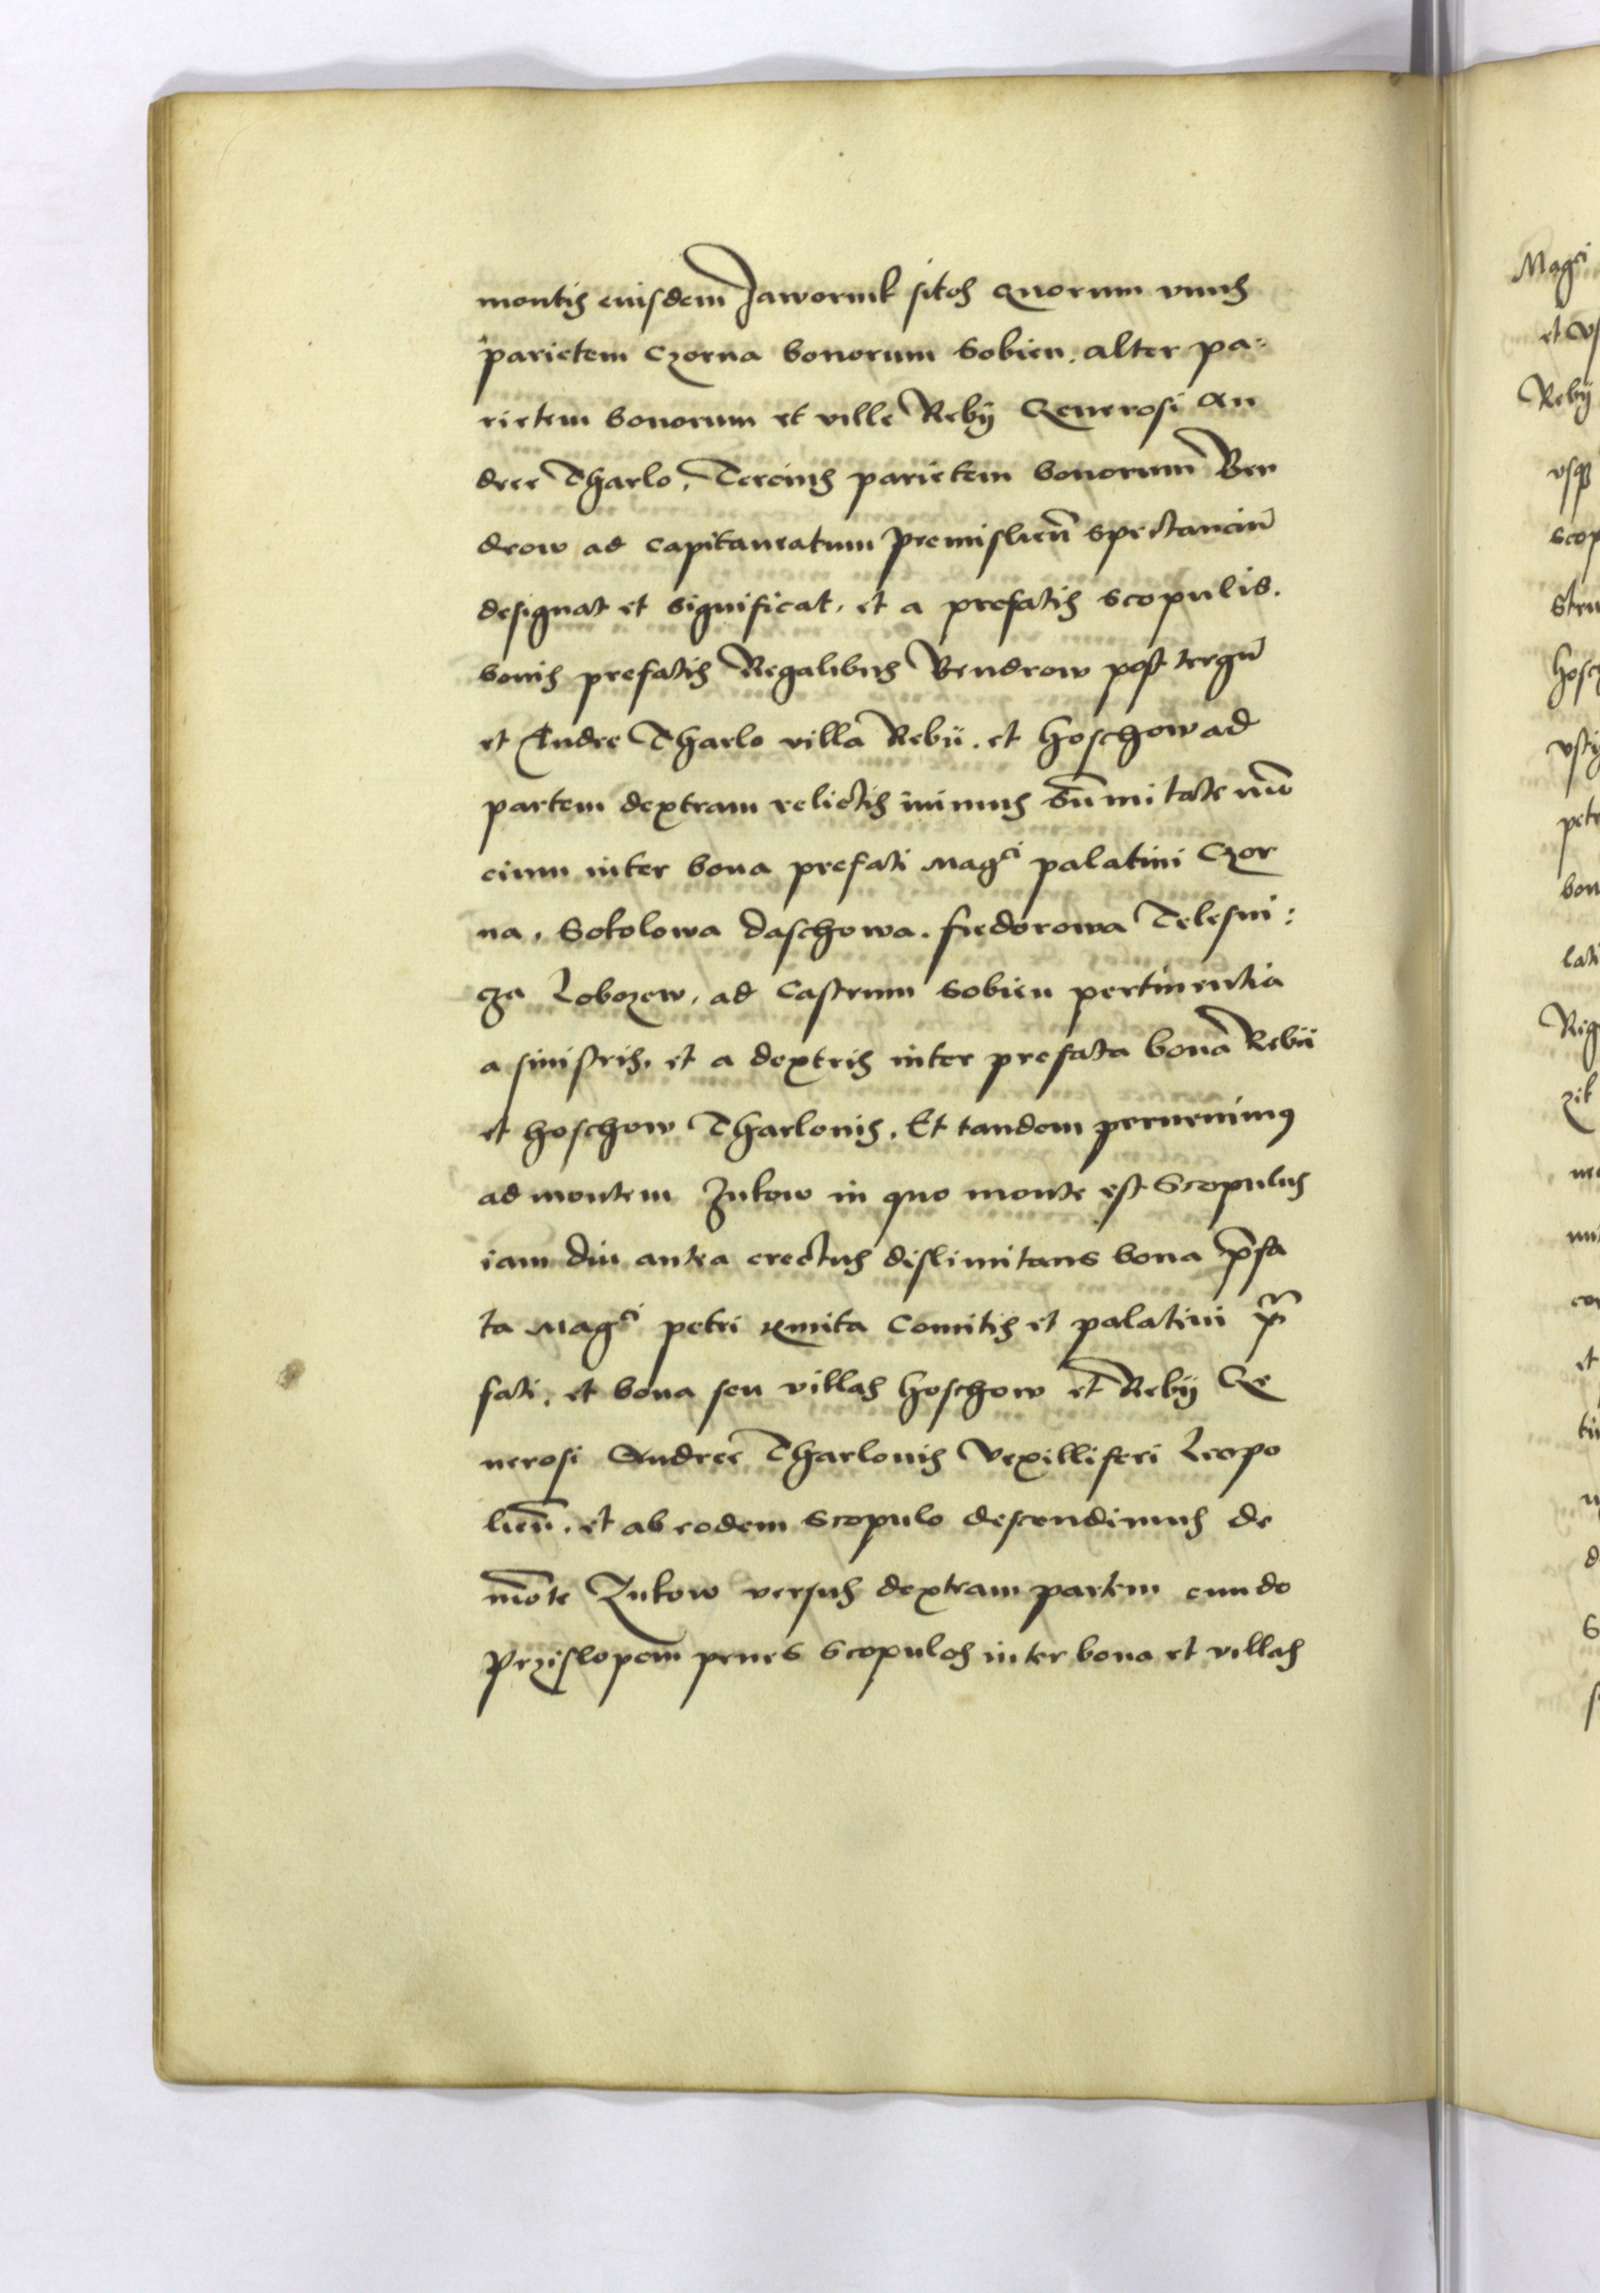 montis eiusdem Jawornik sitos Quorum vnus
parietem Czorna bonorum Sobien. alter pa-
rietem bonorum et ville Rebij Generosi An
dree Tharlo, Tercius parietem bonorum Ben
drow ad capitaneatum premislien̄ spectanciū
designat et significat, et a prefatis scopulis.
bonis prefatis Regalibus Bendrow post tergū
et Andree Tharlo villa Rebii. et hoschow ad
partem dextram relictis iuimus sūmitate
cium inter bona prefati Magci palatini Czor
na, Sokolowa daschowa. fiedorowa Telesni:
cza Lobozew, ad Castrum Sobien pertinentia
a sinistris, et a dextris inter prefata bona Rebii
et hoschow Tharlonis. Et tandem peruenimus
ad montem Zukow in quo monte est Scopulus
iam diu antea erectus dislimitans bona p̄fa
ta Magci petri kmita Comitis et palatini p̄
fati, et bona seu villas hoschow et Rebij Ge
nerosi Andree Tharlonis Vexilliferi Leopo
lien̄. et ab eodem scopulo descendimus de
mōte Zukow versus dextram partem eundo
Przislopem penes scopulos inter bona et villas
Magci
et
Rebij
vsq
scop
hosc
petr
bon
lati
et